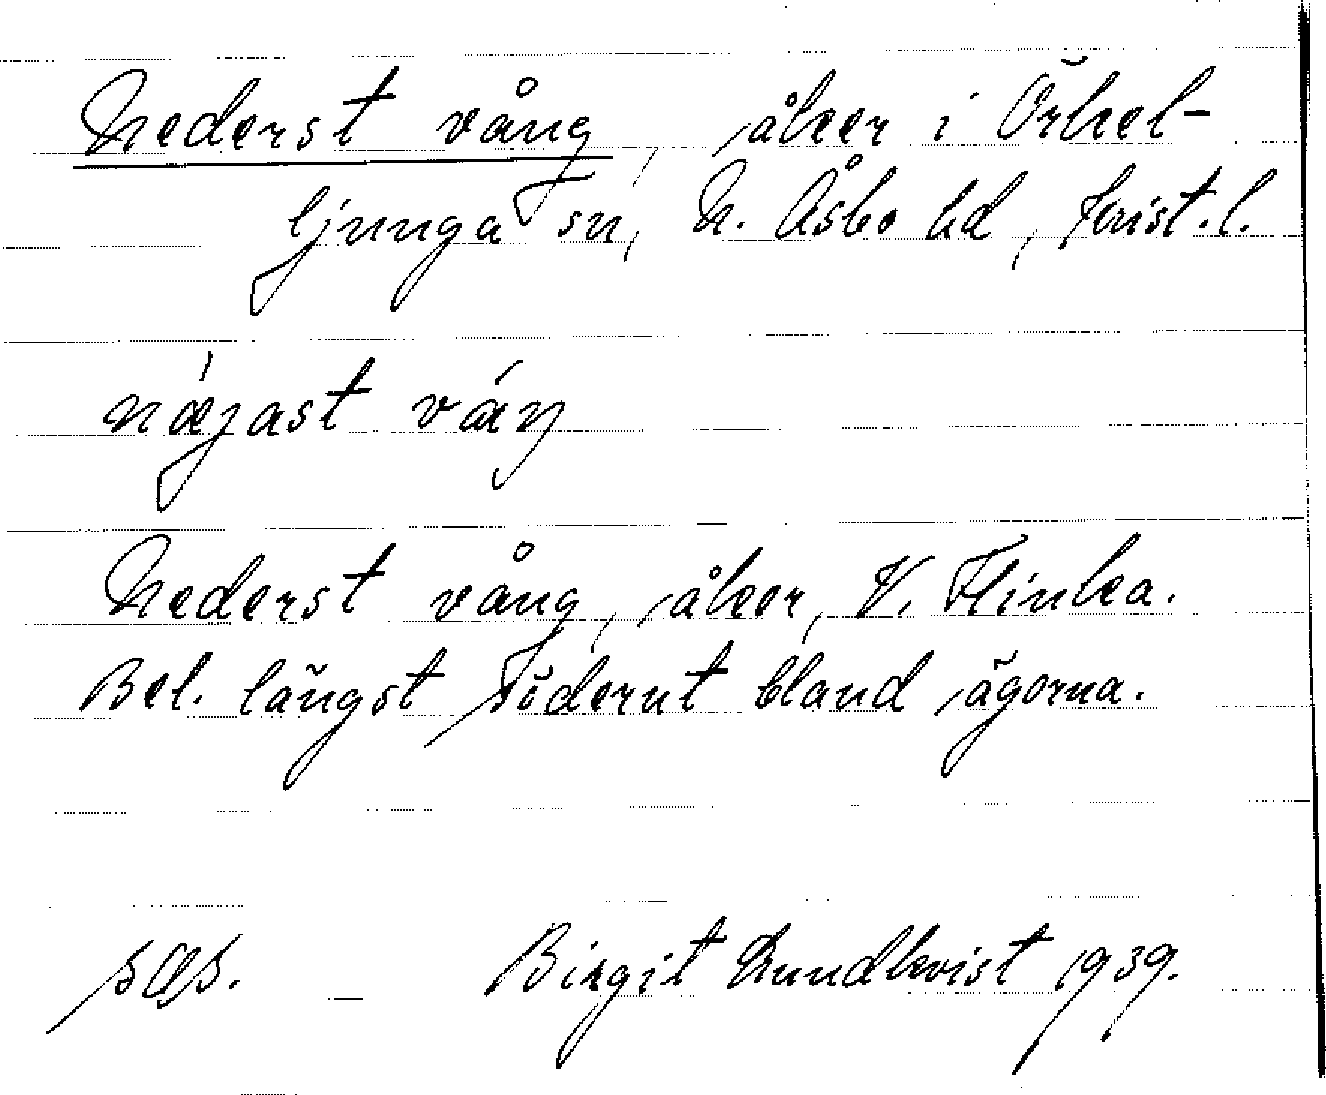 Nederst vång, åker i Örkel-
ljunga sn, N. Åsbo hd, Krist. l.
nǽjast váŋ
Nederst vång, åker, V. Flinka.
Bel. längst söderut bland ägorna.
sas. — Birgit Lundkvist 1939.